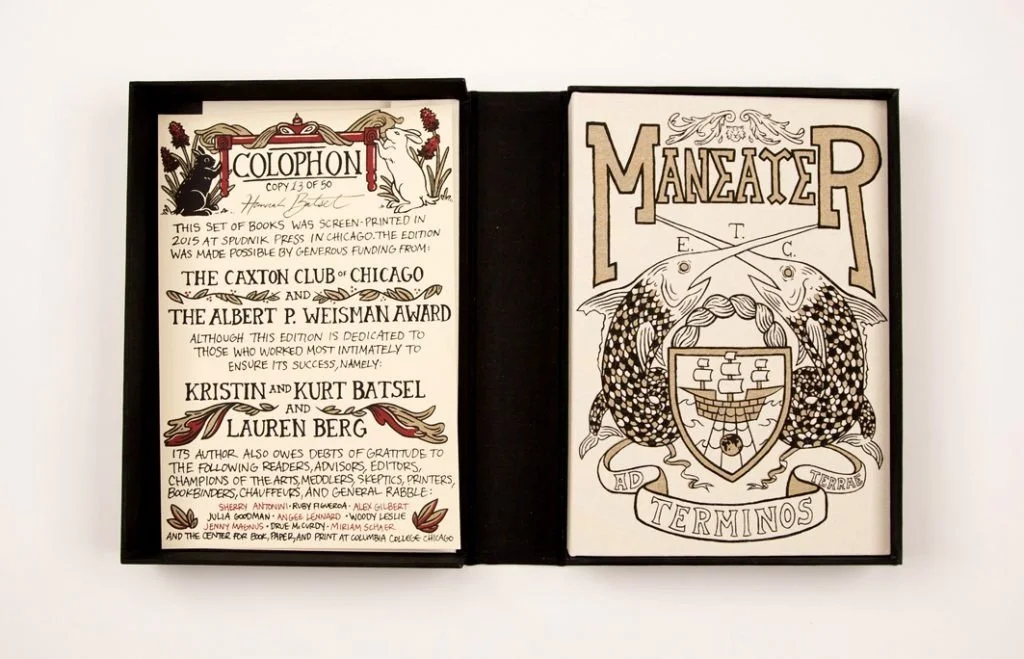 COLOPHON
COPY 13 OF 50
Hannah Batsel
THIS SET OF BOOKS WAS SCREEN-PRINTED IN
2015 AT SPUDNIK PRESS IN CHICAGO. THE EDITION
WAS MADE POSSIBLE BY GENEROUS FUNDING FROM:
THE CAXTON CLUB OF CHICAGO
AND
THE ALBERT P. WEISMAN AWARD
ALTHOUGH THIS EDITION IS DEDICATED TO
THOSE WHO WORKED MOST INTIMATELY TO
ENSURE ITS SUCCESS, NAMELY:
KRISTIN AND KURT BATSEL
AND
LAUREN BERG
ITS AUTHOR ALSO OWES DEBTS OF GRATITUDE TO
THE FOLLOWING READERS, ADVISORS, EDITORS,
CHAMPIONS OF THE ARTS, MEDDLERS, SKEPTICS, PRINTERS,
BOOKBINDERS, CHAUFFEURS, AND GENERAL RABBLE:
SHERRY ANTONINI • RUBY FIGUEROA • ALEX GILBERT
JULIA GOODMAN • ANGEE LENNARD • WOODY LESLIE
JENNY MAGNUS • DRUE McCURDY • MIRIAM SCHAER
AND THE CENTER FOR BOOK, PAPER, AND PRINT AT COLUMBIA COLLEGE CHICAGO
MANEATER
E. T. C.
AD
TERRAE
TERMINOS